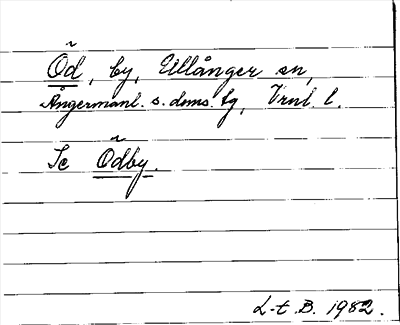 Õd, by, Ullånger sn,
Ångermanl. s. doms. tg, Vrnl. l.
Se Õdby.
L-t. B. 1982.